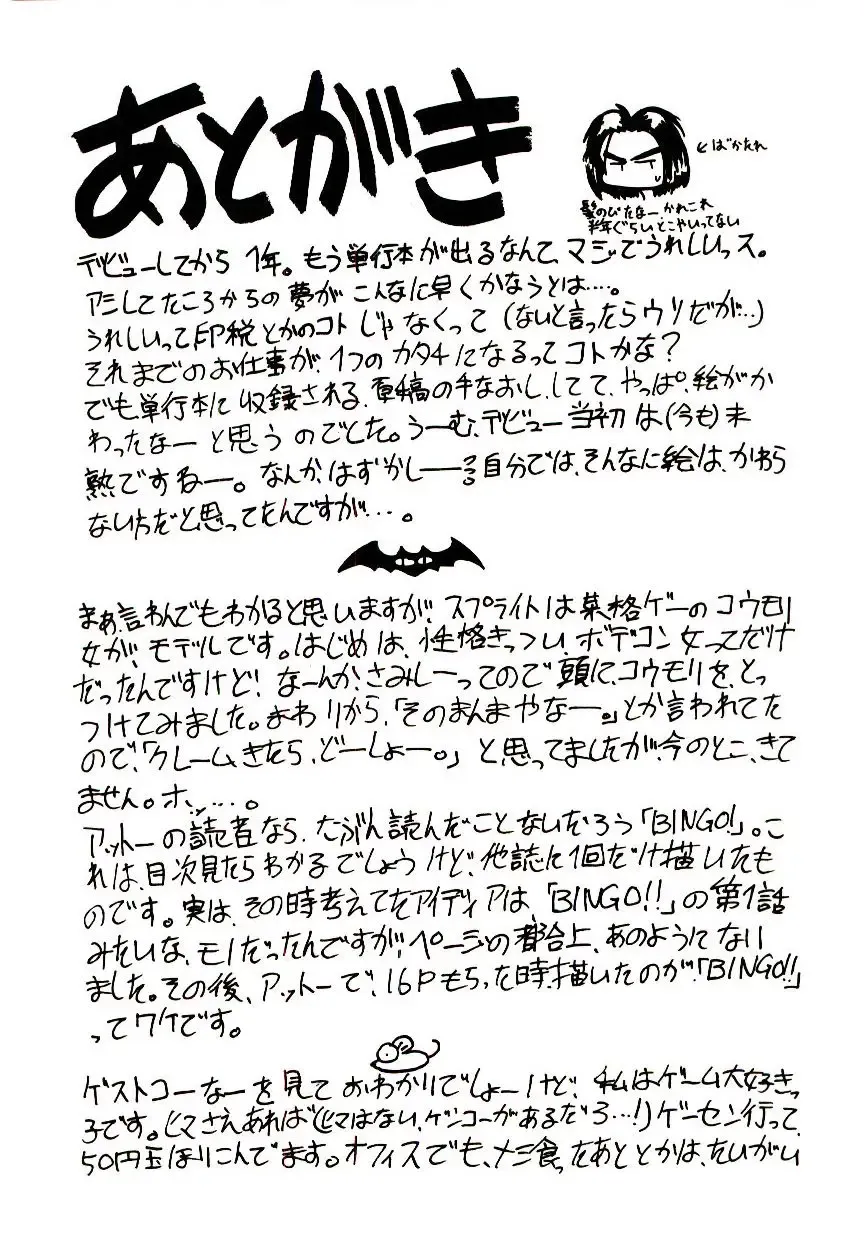 あとがき
←ばかたれ
髪のびたなー かれこれ
半年ぐらいとこやいってない
デビューしてから 1年。もう単行本が出るなんて、マジでうれしいっス。
アシしてたころからの夢が こんなに早くかなうとは…。
うれしいって印税とかのコトじゃなくって(ないと言ったらウソだが…)
それまでのお仕事が、1つのカタチになるってコトかな?
でも、単行本に収録される、原稿の手なおし、してて、やっぱ。絵がか
わったなーと思うのでした。うーむ、デビュー当初は(今も)未
熟ですねー。なんか、はずかしーーっ 自分では、そんなに絵は、かわら
ない方だと思ってたんですが…。
まぁ、言わんでもわかると思いますが、スプライトは某格ゲーのコウモリ
女が、モデルです。はじめは、性格きっつい、ボデコン女ってだけ
だったんですけど、なーんか、さみしーってので 頭に、コウモリを、とっ
つけてみました。まわりから、「そのまんまやなー。」とか言われてた
ので、「クレーム、きたら、どーしょー。」と思ってましたが、今のとこ、きて
ません。ホッ…。
アットーの読者なら、たぶん読んだことないだろう「BINGO!」。こ
れは、目次見たらわかるでしょうけど、他誌に1回だけ描いたも
のです。実は、その時考えてたアイディアは、「BINGO!!」の第1話
みたいな、モノだったんですが、ページの都合上、あのようになり
ました。その後、アットーで、16Pもらった時、描いたのが、「BINGO!!」
ってワケです。
ゲストコーなーを見ておわかりでしょーけど、私はゲーム大好きっ
子です。ヒマさえあれば(ヒマはない、ゲンコーがあるだろ…!)ゲーセン行って、
50円玉ほりこんでます。オフィスでも、メシ食ったあととかは、たいがい